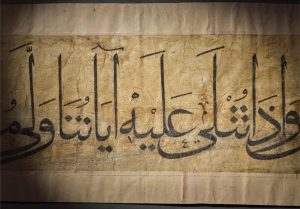 وَاِذَا تُتْلَى عَلَيْهِ آيَاتُنَا وَلَّى